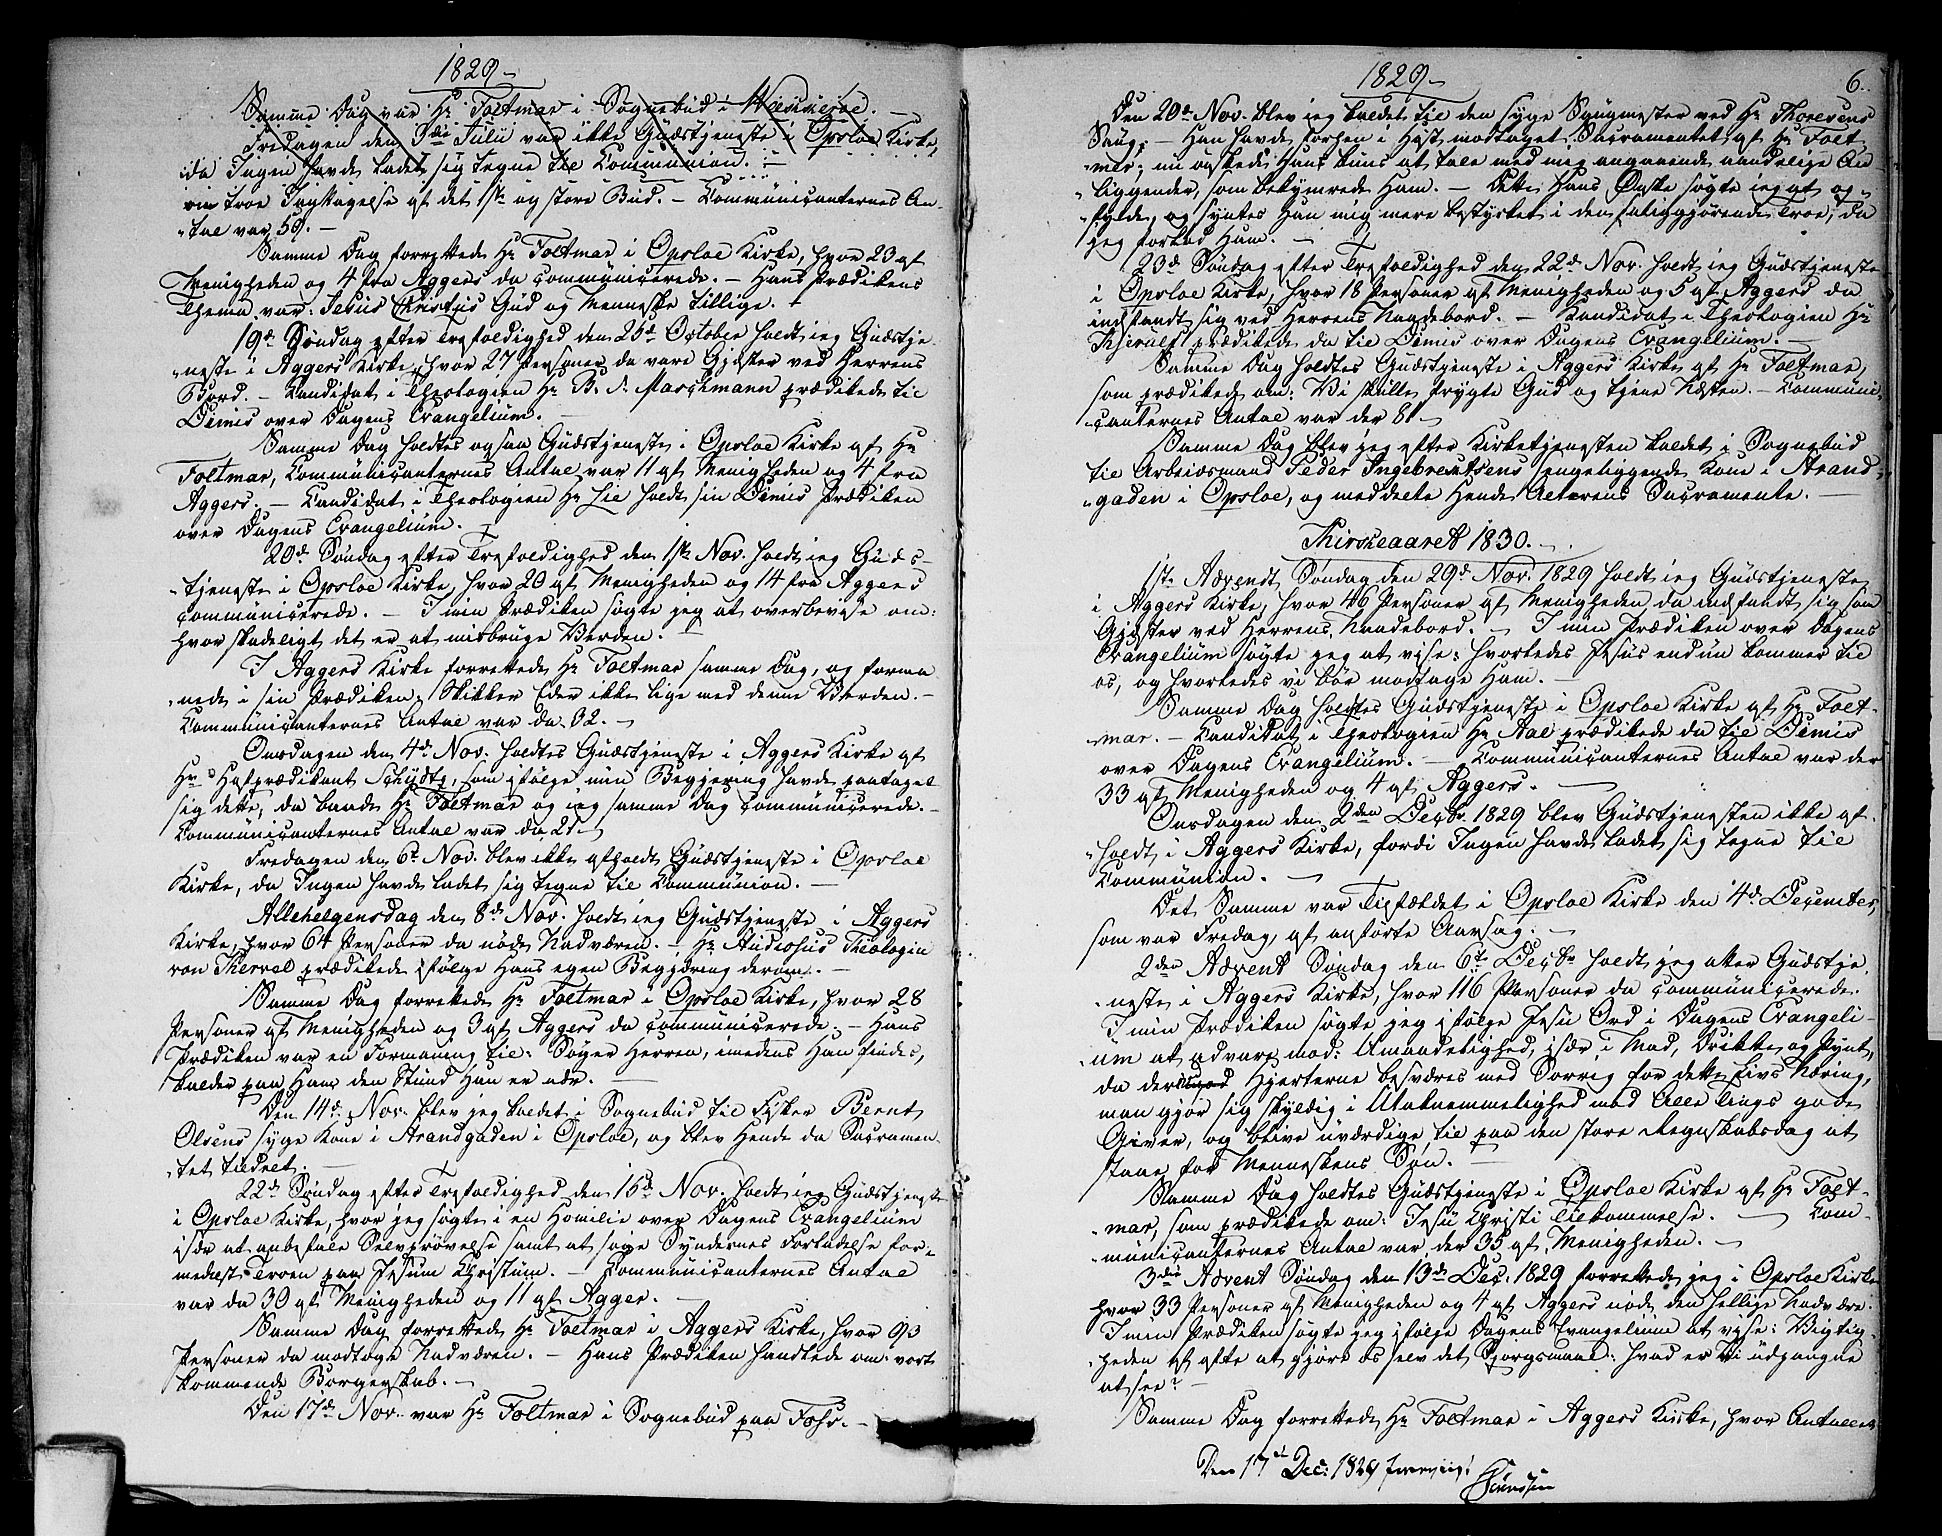 1829 -
Samme Dag var Hr Foltmar i Sognebud i
Fredagen den 3die Julii var ikke Gudstjeneste i Opsloe Kirke,
da Ingen havde ladet sig tegne til Communion. -
troe Iagttagelse af det 1ste og store Bud. - Communicanternes An-
-tal var 59. -
Samme Dag forrettede Hr Foltmar i Opsloe Kirke, hvor 23 af
Menigheden og 4 fra Aggers da communicerede. - Hans Prædikens
Thema var: Jesus Christus Gud og Menneske tillige. -
19de Søndag efter Trefoldighed den 25d October holdt jeg Gudstje-
-neste i Aggers Kirke, hvor 27 Personer da vare Gjæster ved Herrens
Bord. - Candidat i Theologien Hr B. N. Maschmann prædikede til
Dimis over Dagens Evangelium. -
Samme Dag holdtes ogsaa Gudstjeneste i Opsloe Kirke af Hr
Foltmar, Communicanternes Antal var 11 af Menigheden og 4 fra
Aggers. - Candidat i Theologien Hr Lie holdt sin Dimis Prædiken
over Dagens Evangelium. -
20de Søndag efter Trefoldighed den 1ste Nov. holdt jeg Guds-
-tjeneste i Opsloe Kirke, hvor 20 af Menigheden og 14 fra Aggers
communicerede. - I min Prædiken søgte jeg at overbevise om:
hvor skadeligt det er at misbruge Verden. -
I Aggers Kirke forrettede Hr Foltmar samme Dag, og forma-
-nede i sin Prædiken: Skikker Eder ikke lige med denne Verden. -
Communicanternes Antal var da 32. -
Onsdagen den 4de Nov. holdtes Gudstjeneste i Aggers Kirke af
Hr Hofprædikant Schydtz, som ifølge min Begjering havde paataget
sig dette, da baade Hr Foltmar og jeg samme Dag communicerede. -
Communicanternes Antal var da 21 -
Fredagen den 6te Nov. blev ikke afholdt Gudstjeneste i Opsloe
Kirke, da Ingen havde ladet sig tegne til Communion. -
Allehelgensdag den 8de Nov. holdt jeg Gudstjeneste i Aggers
Kirke, hvor 64 Personer da nøde Nadveren. - Hr Studiosus Theologiæ
von Therrel prædikede ifølge Hans egen Begjæring derom. -
Samme Dag forrettede Hr Foltmar i Opsloe Kirke, hvor 28
Personer af Menigheden og 3 af Aggers da communicerede. - Hans
Prædiken var en Formaning til: Søger Herren, imedens Han findes,
kalder paa Ham den Stund Han er nær. -
Den 14de Nov. blev jeg kaldet i Sognebud til Fisker Bernt
Olsens syge Kone i Strandgaden i Opsloe, og blev Hende da Sacramen-
-tet tildelt. -
22de Søndag efter Trefoldighed den 15de Nov. holdt jeg Gudstjeneste
i Opsloe Kirke, hvor jeg søgte i en Homilie over Dagens Evangelium
især at anbefale Selvprøvelse samt at søge Syndernes Forladelse for-
medelst Troen paa Jesum Christum. - Communicanternes Antal
var da 30 af Menigheden og 11 af Agger. -
Samme Dag forrettede Hr Foltmar i Aggers Kirke, hvor 93
Personer da modtoge Nadveren. - Hans Prædiken handlede om: vort
kommende Borgerskab. -
Den 17de Nov. var Hr Foltmar i Sognebud paa -
1829 -
6.
Den 20de Nov. blev jeg kaldet til den syge Saugmester ved Hr Thoresens
Saug. - Han havde forhen i Høst modtaget Sacramentet af Hr Folt-
-mar; nu ønskede Hans kuns at tale med meg angaaende aandelige An-
-liggender, som bekymrede Ham. - Dette Hans Ønske søgte jeg at op-
-fylde, og syntes Han mig mere bestyrket i den saliggjørende Troe, da
jeg forlod Ham. -
23de Søndag efter Trefoldighed den 22de Nov. holdt jeg Gudstjeneste
i Opsloe Kirke, hvor 18 Personer af Menigheden og 5 af Aggers da
indfandt sig ved Herrens Naadebord. - Kandidat i Theologien Hr
Kjerulf prædikede da til Dimis over Dagens Evangelium. -
Samme Dag holdtes Gudstjeneste i Aggers Kirke af Hr Foltmar,
som prædikede om: Vi skulle frygte Gud og tjene Næsten. - Communi-
-canternes Antal var der 81 -
Samme Dag blev jeg efter Kirketjenesten kaldet i Sognebud
til Arbeidsmand Peder Ingebregtsens sengeliggende Kone i Strand-
-gaden i Opsloe, og meddelte Hende Alterens Sacramente. -
Kirkeaaret 1830. -
1ste Advendt Søndag den 29de Nov. 1829 holdt jeg Gudstjeneste
i Aggers Kirke, hvor 46 Personer af Menigheden da indfandt sig som
Gjæster ved Herrens Naadebord. - I min Prædiken over Dagens
Evangelium søgte jeg at vise: hvorledes Jesus endnu kommer til
os, og hvorledes vi bør modtage Ham. -
Samme Dag holdtes Gudstjeneste i Opsloe Kirke af Hr Folt-
-mar. - Candidat i Theologien Hr Aal prædikede da til Dimis
over Dagens Evangelium. - Communicanternes Antal var der
33 af Menigheden og 4 af Aggers. -
Onsdagen den 2den Decbr. 1829 blev Gudstjenesten ikke af-
-holdt i Aggers Kirke, fordi Ingen havde ladet sig tegne til
Communion. -
Det Samme var Tilfældet i Opsloe Kirke den 4de December,
som var Fredag, af anførte Aarsag. -
2den Advent Søndag den 6te Decbr holdt jeg atter Gudstje-
-neste i Aggers Kirke, hvor 116 Personer da communicerede.
I min Prædiken søgte jeg ifølge Jesu Ord i Dagens Evangeli-
-um at advare mod: Umaadelighed, især i Mad, Drikke og Pynt,
da Hjerterne besværes med Sorrig for dette Livs Næring,
man gjør sig skyldig i Utaknemmelighed mod Alle Tings gode
Giver, og blive uværdige til paa den store Regnskabsdag at
staae for Menneskens Søn. -
Samme Dag holdtes Gudstjeneste i Opsloe Kirke af Hr Folt-
-mar, som prædikede om: Jesu Christi Tilkommelse. - Com-
-municanternes Antal var der 35 af Menigheden. -
3die Advent Søndag den 13de Dec. 1829 forrettede jeg i Opsloe Kirke
hvor 33 Personer af Menigheden og 4 af Aggers nøde den hellige Nadvere.
I min Prædiken søgte jeg ifølge Dagens Evangelium at vise: Vigtig-
-heden af ofte at gjøre os selv det Spørgsmaal: hvad er Vi udgangne
at see? -
Samme Dag forrettede Hr Foltmar i Aggers Kirke, hvor Antallet
Den 17de Dec: 1829
Sørenssen